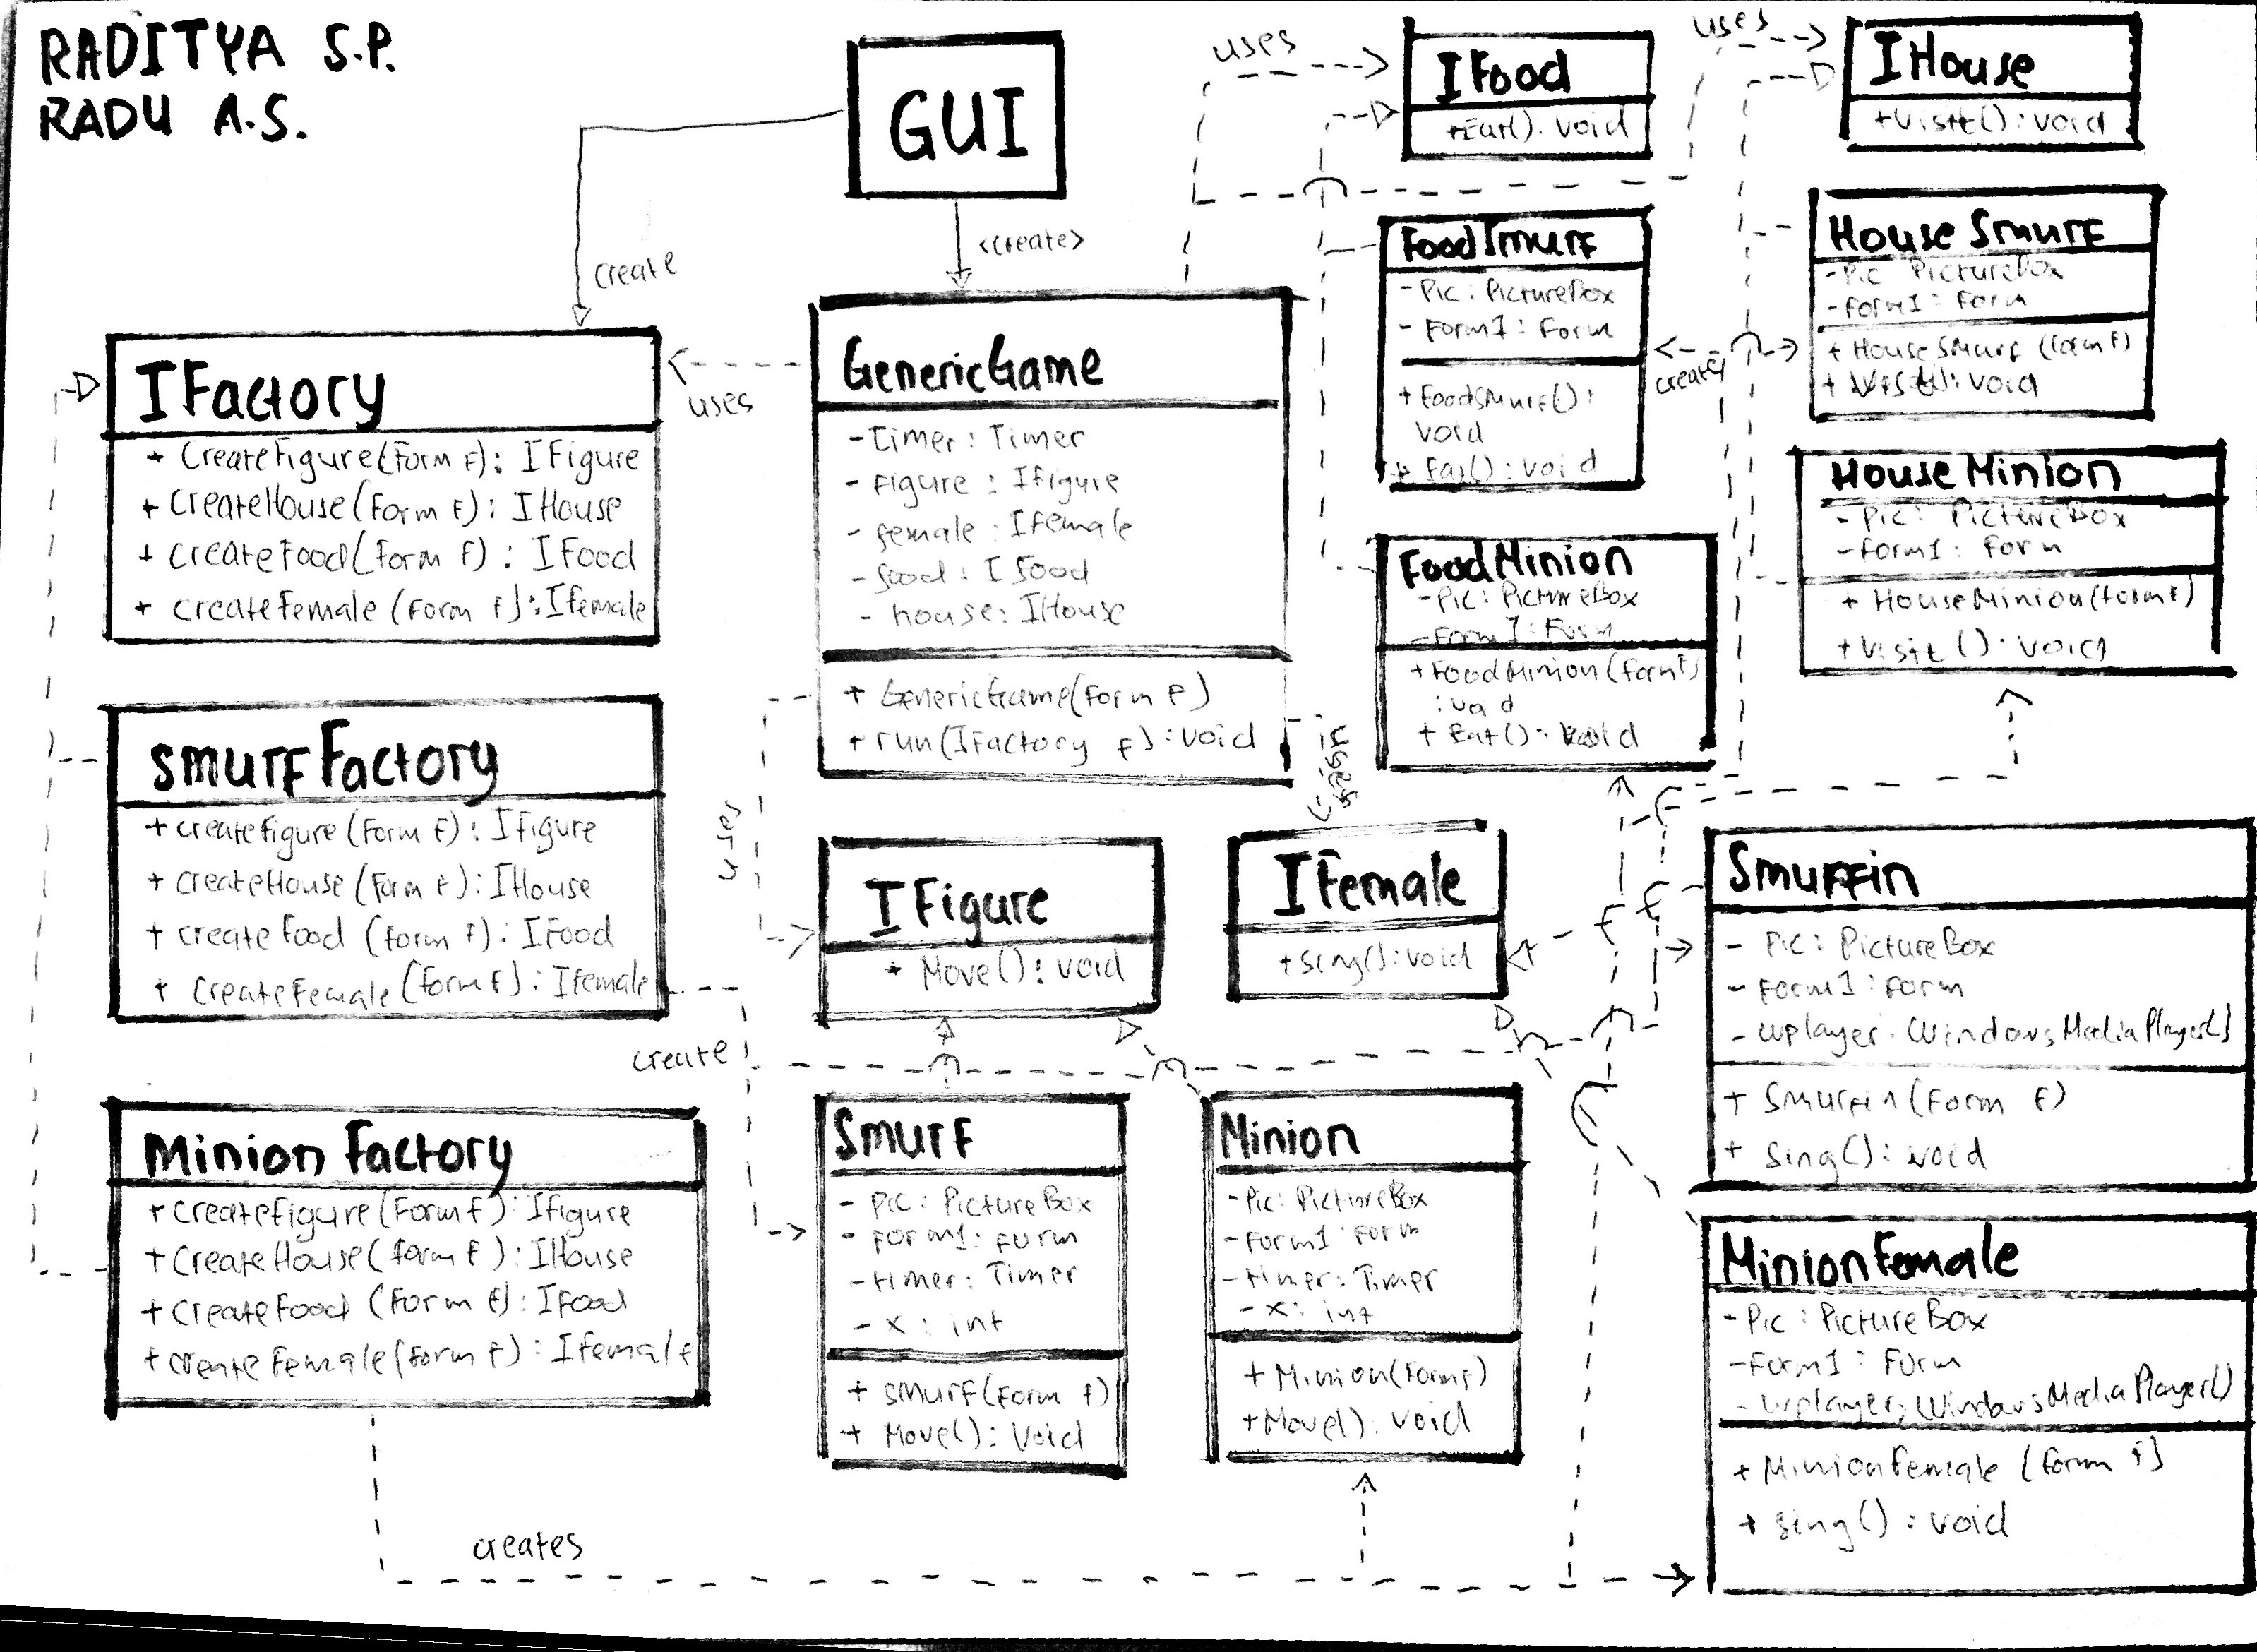 RADITYA S.P.
RADU A.S.
GUI
create
<create>
uses
IFood
+Eat(): void
uses
IHouse
+Visit(): void
IFactory
+ CreateFigure(Form F): IFigure
+ CreateHouse(Form F): IHouse
+ CreateFood(Form F) : IFood
+ createFemale (Form F): IFemale
uses
GenericGame
- Timer: Timer
- Figure : IFigure
- female : IFemale
- food : IFood
- house: IHouse
+ GenericGame(Form F)
+ run(IFactory F): void
uses
uses
FoodSmurf
- Pic: PictureBox
- Form1: Form
+ FoodSmurf():
void
+ Eat(): void
create
HouseSmurf
-Pic PictureBox
-Form1: Form
+ HouseSmurf (form F)
+ Visit(): void
FoodMinion
-Pic: PictureBox
-Form1: Form
+FoodMinion(form F)
: void
+ Eat(): void
HouseMinion
-Pic: PictureBox
-Form1: Form
+ HouseMinion(form F)
+ Visit (): void
smurfFactory
+ createFigure (Form F): IFigure
+ createHouse (Form F): IHouse
+ createFood (form F): IFood
+ CreateFemale (form F): IFemale
create
IFigure
+ Move(): void
IFemale
+ sing(): void
Smurffin
- Pic: PictureBox
- Form1: Form
- wplayer: WindowsMediaPlayer()
+ Smurffin(Form F)
+ Sing(): void
Minion Factory
+ createFigure(Form F): IFigure
+ CreateHouse(form F): IHouse
+ createFood (Form F): IFood
+ createFemale(Form F): IFemale
creates
Smurf
- Pic: PictureBox
- Form1: Form
- timer: Timer
- x: int
+ smurf(Form F)
+ Move(): Void
Minion
- Pic: PictureBox
- Form1: Form
- timer: Timer
- x: int
+ Minion(Form F)
+Move(): void
MinionFemale
- Pic: PictureBox
-Form1: Form
- wplayer: WindowsMediaPlayer()
+ MinionFemale (form F)
+ Sing(): void